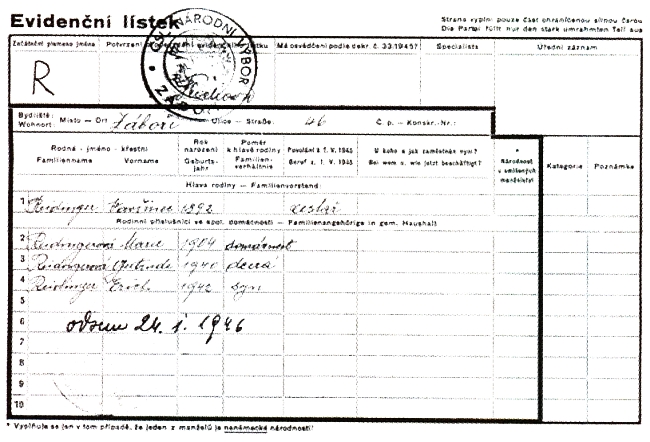 Evidenční lístek
Strana vyplní pouze část ohraničenou silnou čarou
Die Partei füllt nur den stark umrahmten Teil aus
MÍSTNÍ NÁRODNÍ VÝBOR
ZÁBOŘÍ
Začáteční písmeno jména
Potvrzení evidenčního lístku
Má osvědčení podle dekr. č. 33.1945?
Specialista
Úřední záznam
R
Bydliště: Místo — Ort Záboří Ulice — Straße: 46 Č. p. — Konskr.-Nr.:
Wohnort:
Rodné - jméno - křestní
Familienname Vorname
Rok narození
Geburtsjahr
Poměr k hlavě rodiny
Familienverhältnis
Povolání z 1. V. 1945
Beruf z. 1. V. 1945
U koho a jak zaměstnán nyní?
Bei wem u. wie jetzt beschäftigt?
*
Národnost u smíšených manželství
Kategorie
Poznámka
Hlava rodiny — Familienvorstand:
1 Reidinger Vavřinec 1892 cestář
Rodinní příslušníci ve spol. domácnosti — Familienangehörige in gem. Haushalt
2 Reidingerová Marie 1904 domácnost
3 Reidingerová Gertrude 1940 dcera
4 Reidinger Erich 1942 syn
5
6 odsun 24. 1. 1946
7
8
9
10
* Vyplňuje se jen v tom případě, že jeden z manželů je neněmecké národnosti!